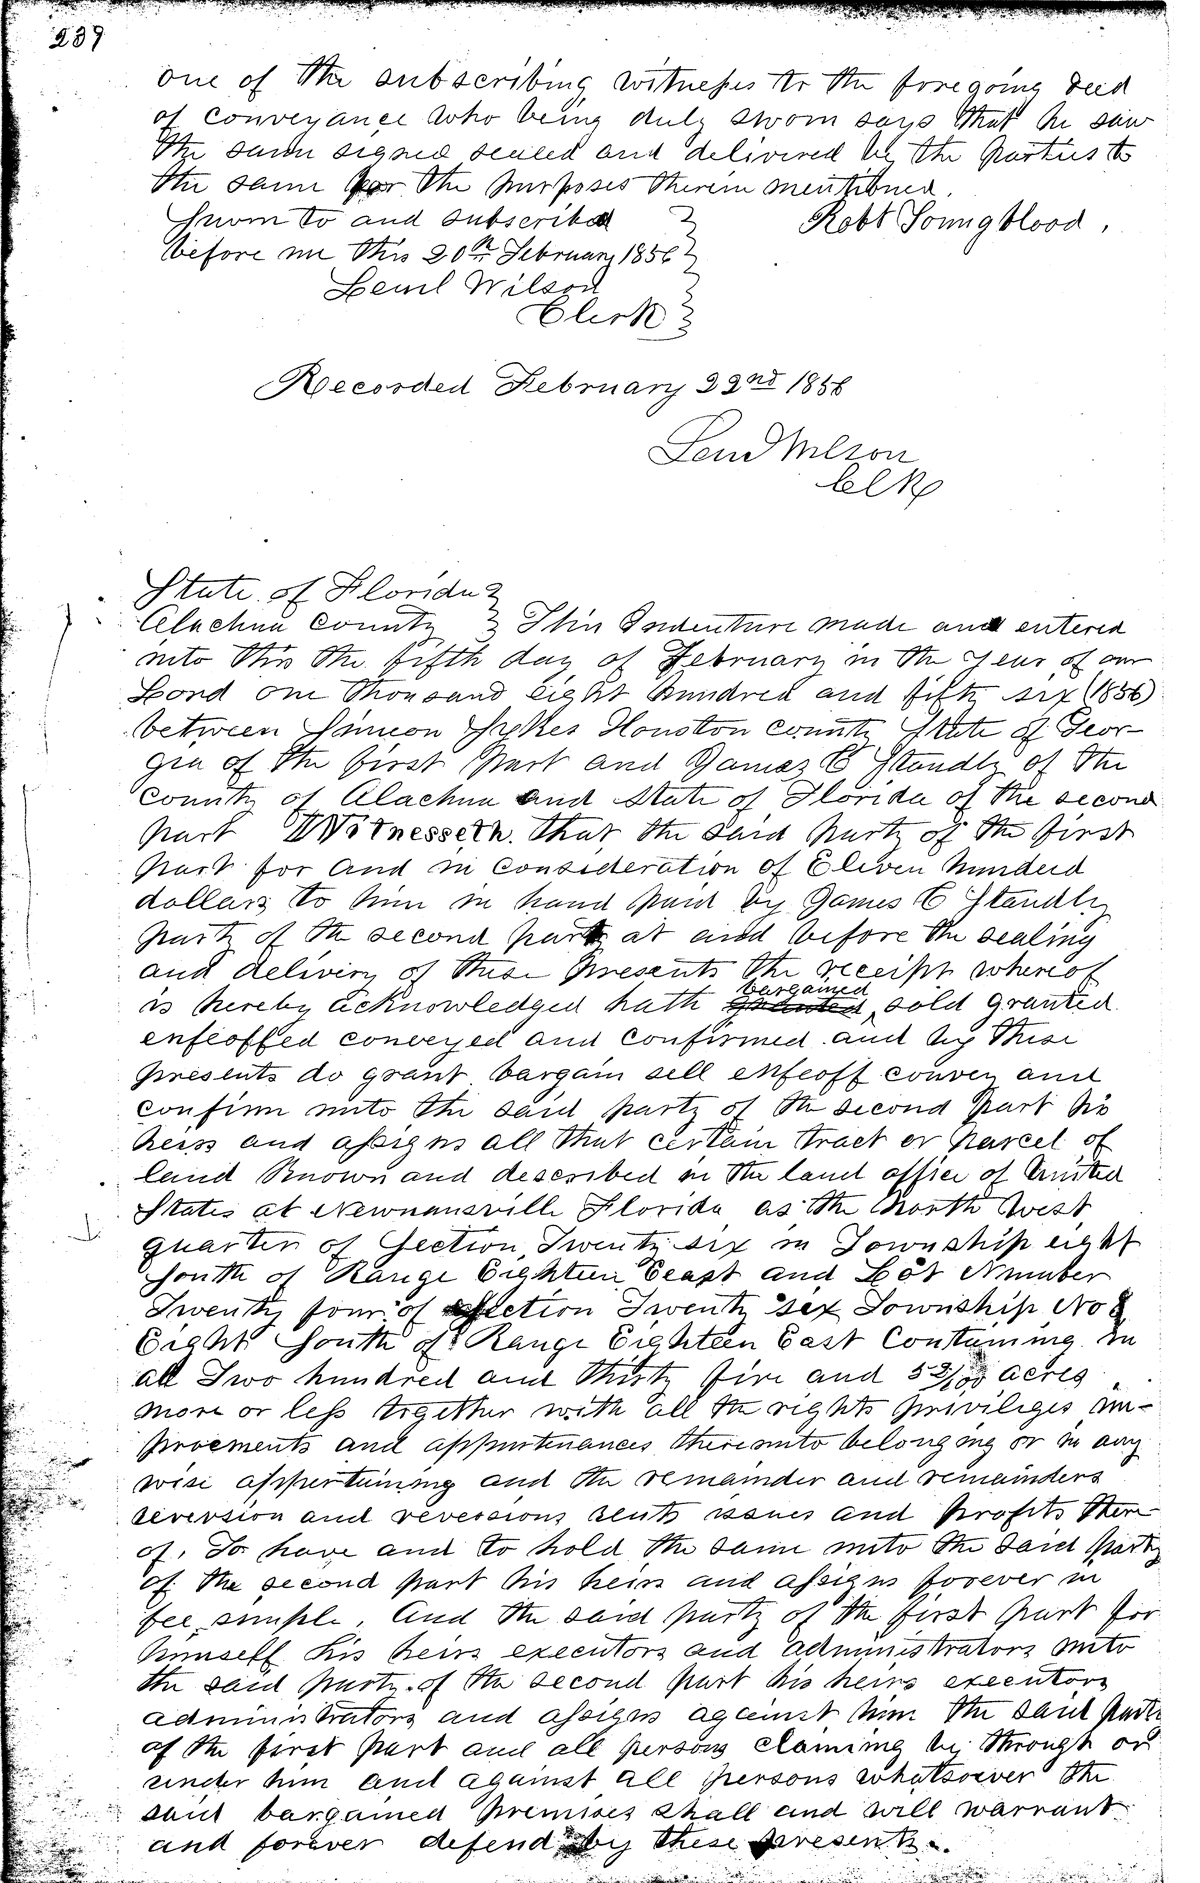 239
one of the subscribing witnesses to the foregoing deed
of conveyance who being duly sworn says that he saw
the same signed sealed and delivered by the parties to
the same for the purposes therein mentioned.
Sworn to and subscribed } Robt Youngblood.
before me this 20th February 1856
Leml Wilson
Clerk
Recorded February 22nd 1856
Leml Wilson
Clk
State of Florida }
Alachua County } This Indenture made and entered
into this the fifth day of February in the year of our
Lord one thousand eight hundred and fifty six (1856)
between Simeon Sykes Houston county State of Geor-
gia of the first part and James C Standly of the
county of Alachua and State of Florida of the second
part Witnesseth. that the said party of the first
part for and in consideration of Eleven hundred
dollars to him in hand paid by James C Standly
party of the second part at and before the sealing
and delivery of these presents the receipt whereof
bargained
is hereby acknowledged hath granted, sold granted
enfeoffed conveyed and confirmed and by these
presents do grant bargain sell enfeoff convey and
confirm unto the said party of the second part his
heirs and assigns all that certain tract or parcel of
land known and described in the land office of United
States at Newnansville Florida as the North West
quarter of Section Twenty six in Township eight
South of Range Eighteen East and Lot Number
Twenty four of Section Twenty six Township No 8
Eight South of Range Eighteen East Containing in
all Two hundred and thirty five and 52/100 acres
more or less together with all the rights priviliges im-
provements and appurtenances thereunto belonging or in any
wise appertaining and the remainder and remainders
reversion and reversions rents issues and profits there-
of. To have and to hold the same unto the said party
of the second part his heirs and assigns forever in
fee simple. And the said party of the first part for
himself his heirs executors and administrators unto
the said party of the second part his heirs executors
administrators and assigns against him the said party
of the first part and all persons claiming by through or
under him and against all persons whatsoever the
said bargained premises shall and will warrant
and forever defend by these presents.